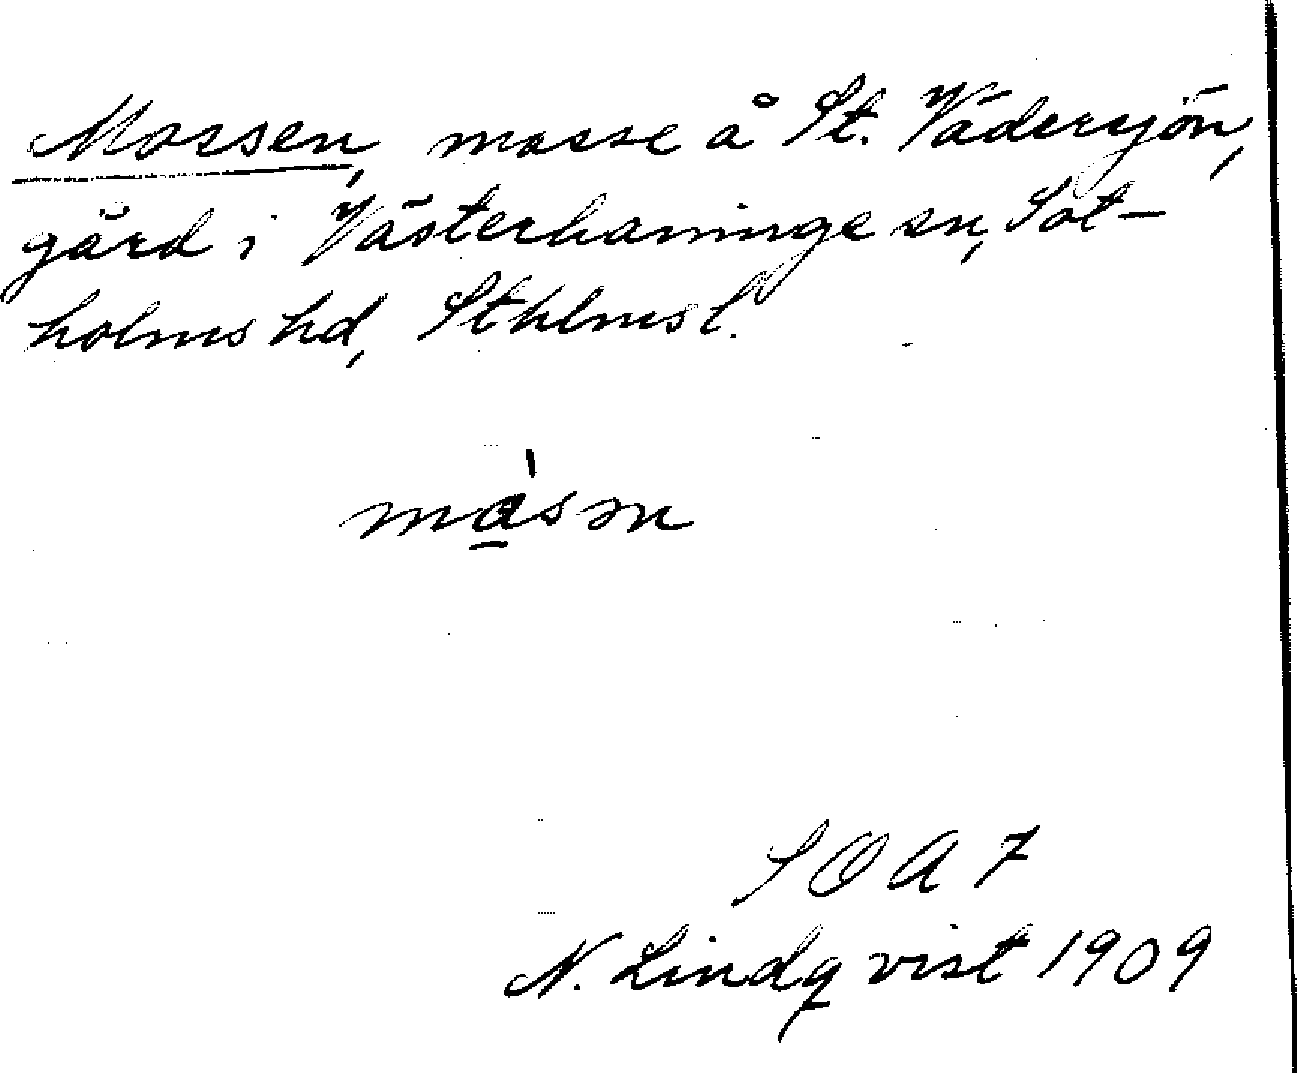 Mossen, mosse å St. Vädersjön,
gård i Västerhaninge sn, Sot-
holms hd, Sthlms l.
må̱sən
SOA 7
N. Lindqvist 1909